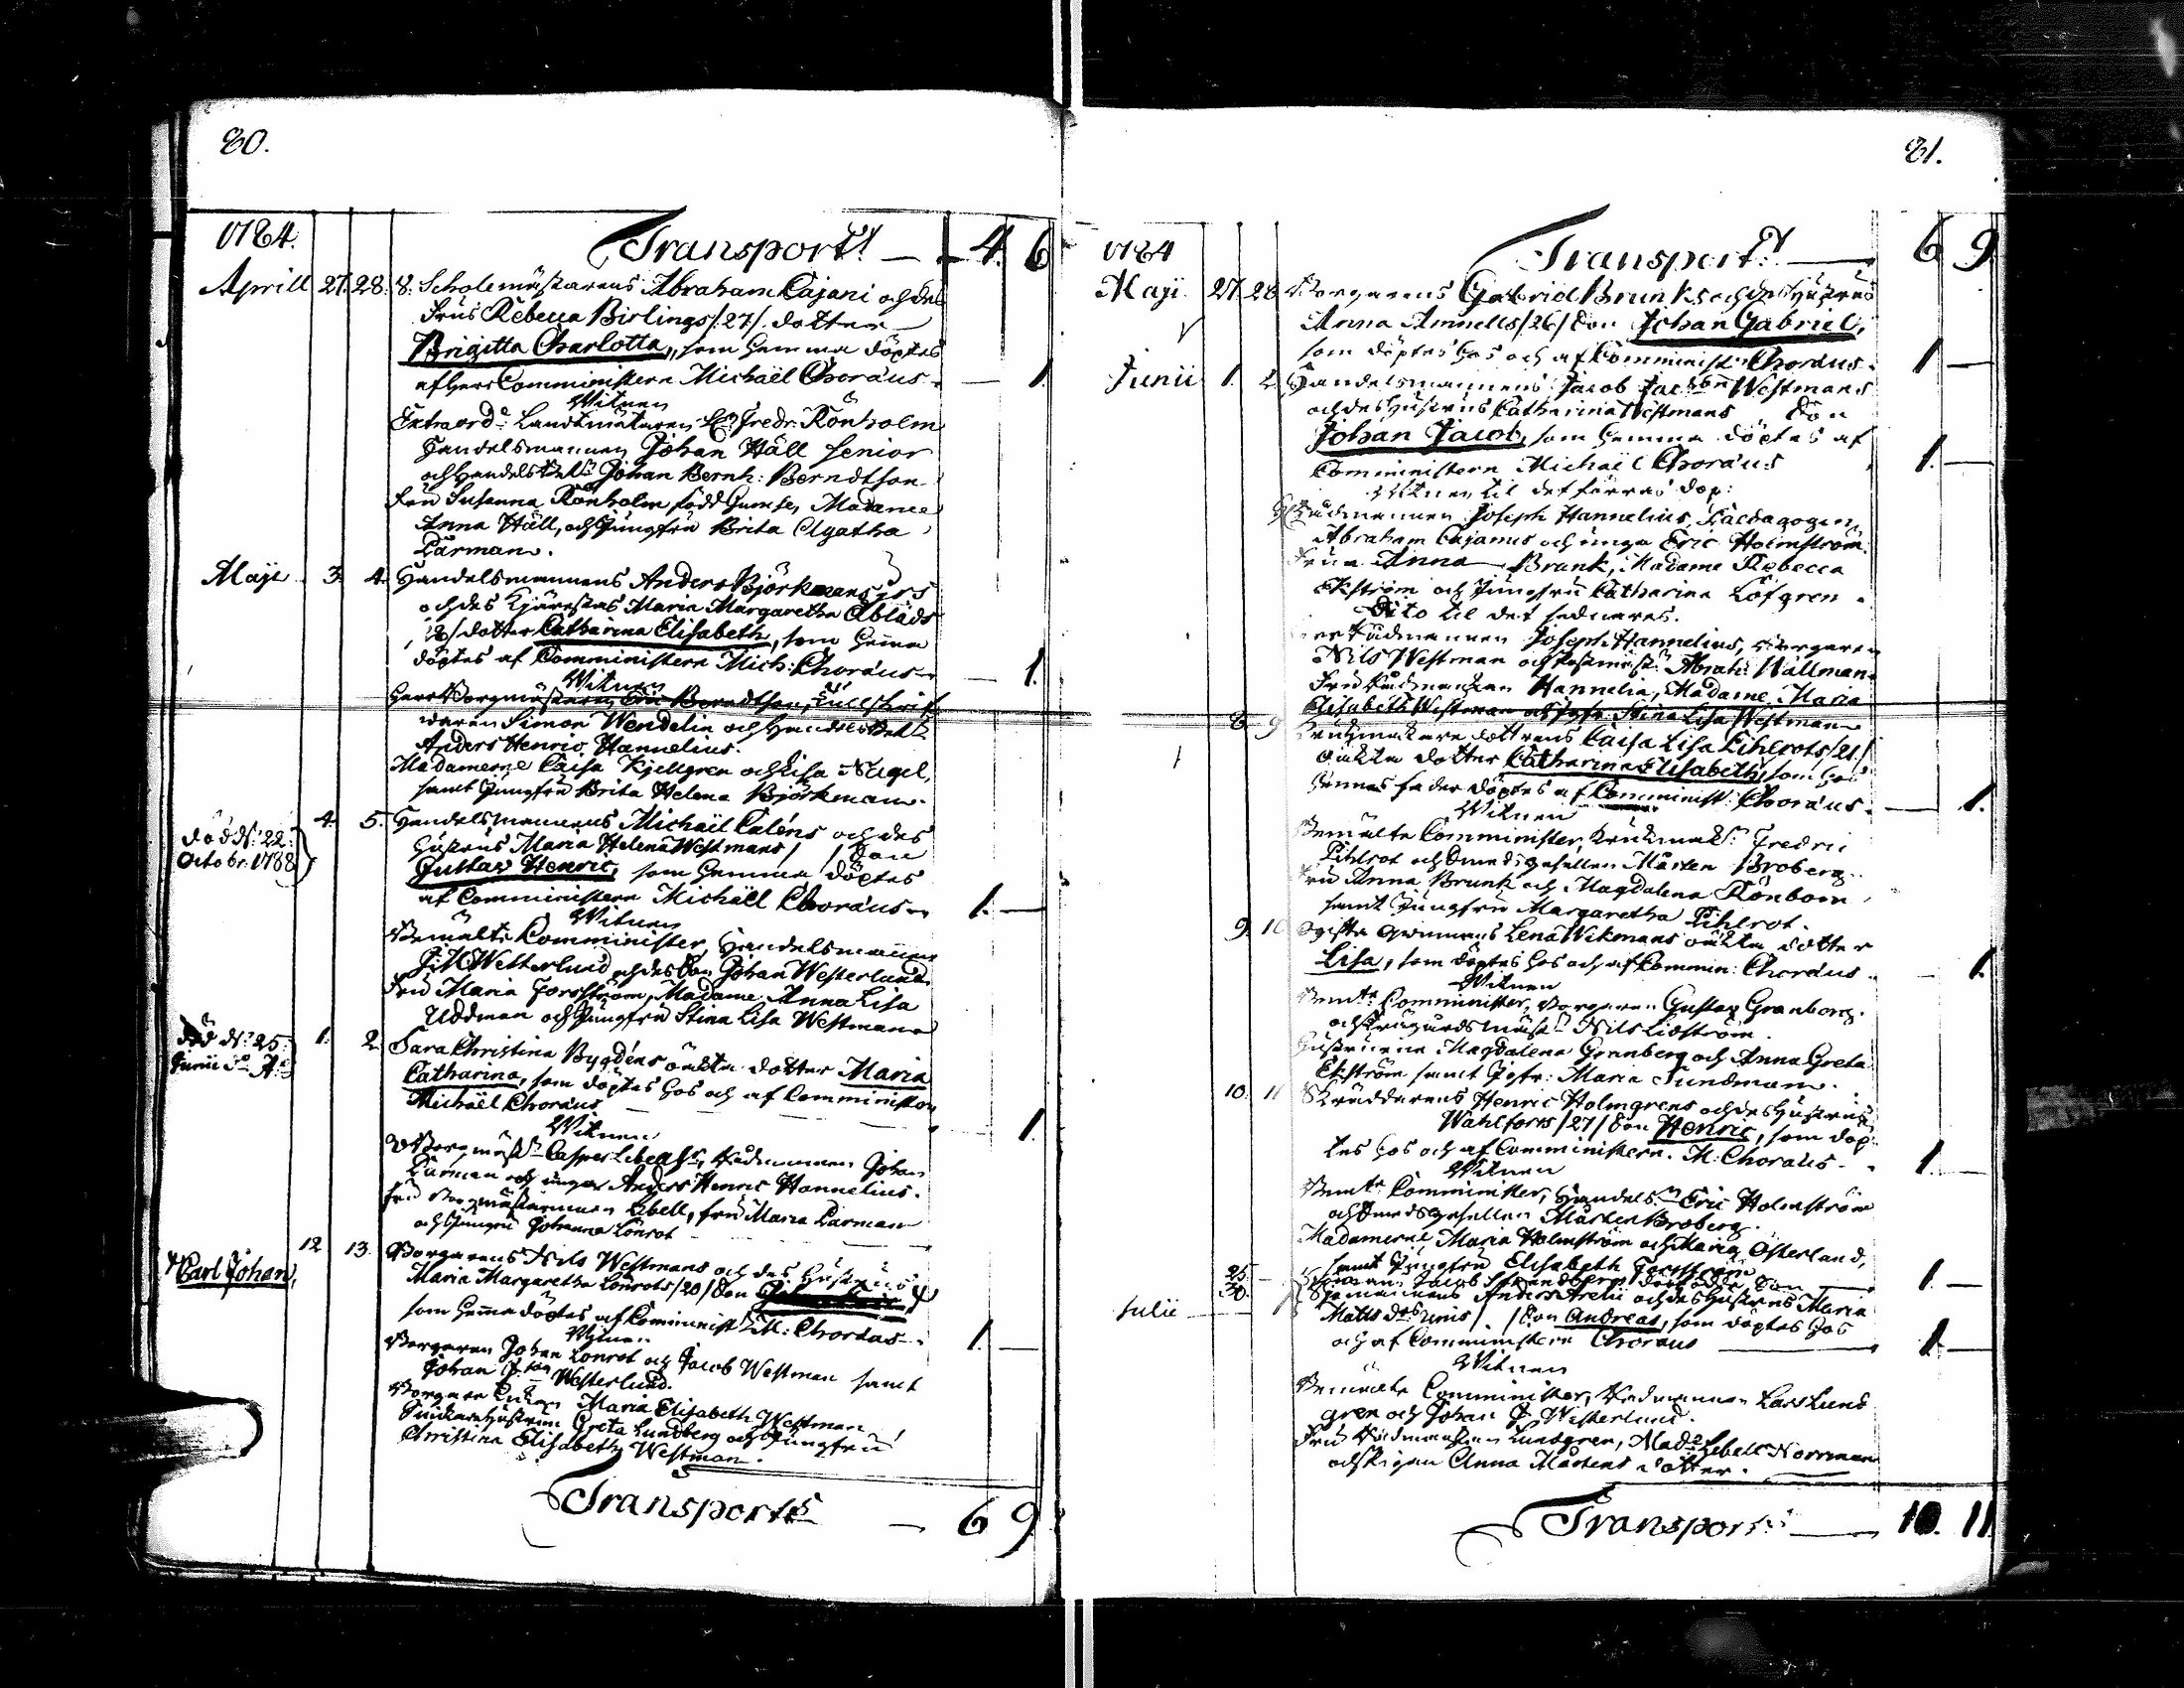 80.
1784.
Transport! — 4. 6
Aprill 27. 28. 8. Scholemästarens Abraham Cajani och des
Frus Rebecca Birlings /27/ dotter
Brigitta Charlotta, som hemma döptes
af Herr Comministern Michaël Choraus — 1.
Witnen
Extraord: Landtmätaren Fredr: Rönholm
Handelsmannen Johan Häll Senior
och Handels Johan Bernh: Berndtson
Fru Susanna Rönholm född Gumse, Madame
Anna Häll, och Jungfru Brita Agatha
Carman.
Maji 3. 4. Handelsmannens Anders Björkmans jrs
och des Kjärestas Maria Margaretha Ablads
dotter Catharina Elisabeth, som hema
döptes af Comministern Mich: Choraus — 1.
Witnen
Herr Borgmästaren Eric Berndtson, Tullskrif
waren Simon Wendelin och Handelsbetj.
Anders Henric Hannelius.
Madamerne Caisa Kjellgren och Lisa Nagel,
samt Jungfru Brita Helena Björkman.
död d. 22.
Octobr. 1788
4. 5. Handelsmannens Michaël Caléns och des
Hustrus Maria Helena Westmans / / Son
Gustav Henric, som hemma döptes
af Comministern Michaël Choraus — 1. —
Witnen
Bemälte Comminister, Handelsmannen
Westerlund och des Son Johan Westerlund.
Fru Maria Forsström, Madame Anna Lisa
Uddman och Jungfru Stina Lisa Westman
död d. 25.
Junii
1. 2. Sara Christina Bygdéns oäkta dotter Maria
Catharina, som döptes hos och af Comministern
Michaël Choraus — 1.
Witnen
Borgmäst. Casper Libell, Rådmannen Johan
Carman och unge Anders Henric Hannelius.
Fru Borgmästarinnan Libell, fru Maria Carman
och Jungfru Johanna Lönrot
Carl Johan,
12. 13. Borgarens Nils Westmans och des Hustrus
Maria Margaretha Lönrots /20/ Son
som hema döptes af Comminist: M: Choraus — 1. —
Witnen
Borgaren Johan Lönrot och Jacob Westman samt
Johan Westerlund.
Borgare Enkan Maria Elisabeth Westman,
Hustrun Greta Lundberg och Jungfru
Christina Elisabeth Westman.
Transport — 6 9
81.
1784
Transport! — 6 9.
Maji 27. 28 Borgarens Gabriel Brunks och des Hustrus
Anna Amnells /26/ Son Johan Gabriel,
som döptes hos och af Comminist: Choraus. 1 —
Junii 1. 2. Handelsmannens Jacob Jacobson Westmans
och des Hustrus Catharina Westmans Son
Johan Jacob, som hemma döptes af
Comministern Michaël Choraus 1. —
Witnen til det förras dop:
Rådmannen Joseph Hannelius, Pædagogen
Abraham Cajanus och unge Eric Holmström.
Fruen Anna Brunk, Madame Rebecca
Ekström och Jungfru Catharina Löfgren.
Dito til det sednares.
Herr Rådmannen Joseph Hannelius, Borgaren
Nils Westman och Abrah: Wällman.
Fru Rådmanskan Hannelia, Madame Maria
Elisabeth Westman och Jgfr. Stina Lisa Westman
8 9 Krukmakare dottrens Caisa Lisa Pihlrots /21/
oäkta dotter Catharina Elisabeth, som hos
hennes fader döptes af Comminist: Choraus. — 1.
Witnen
Bemälte Comminister, Krukmak: Fredric
Pihlrot och Smedsgesellen Mårten Broberg.
Fru Anna Brunk och Magdalena Rönbom,
samt Jungfru Margaretha Pihlrot.
9. 10 Ogifta Qwinnans Lena Wikmans oäkta dotter
Lisa, som döptes hos och af Commin: Choraus. — 1.
Witnen
Bemte Comminister, Borgaren Gustav Granberg
och Trägårdsmäst. Nils Lidström.
Hustruerna Magdalena Granberg och Anna Greta
Ekström samt Jgfr: Maria Sundman.
10. 11 Skräddarens Henric Holmgrens och des Hustrus
Wahlfors /27/ Son Henric, som döp
tes hos och af Comministern. M: Choraus. 1. —
Witnen
Bemte Comminister, Handels: Eric Holmström
och Smedsgesellen Mårten Broberg.
Madamerne Maria Holmström och Maria Österland,
samt Jungfru Elisabeth Forsström
25. Jacob Strandbergs dödfödde Son — 1. —
Julii 30. Sjömannens Anders Arelii och des Hustrus Maria
Matts dotters / / Son Andreas, som döptes hos
och af Comministern Choraus — 1. —
Witnen
Bemälte Comminister, Rådmannen Lars Lund
gren och Johan Westerlund.
Fru Rådmanskan Lundgren, Mad. Lebell Norrman
och Pigan Anna Mårtens dotter.
Transport — 10. 11.